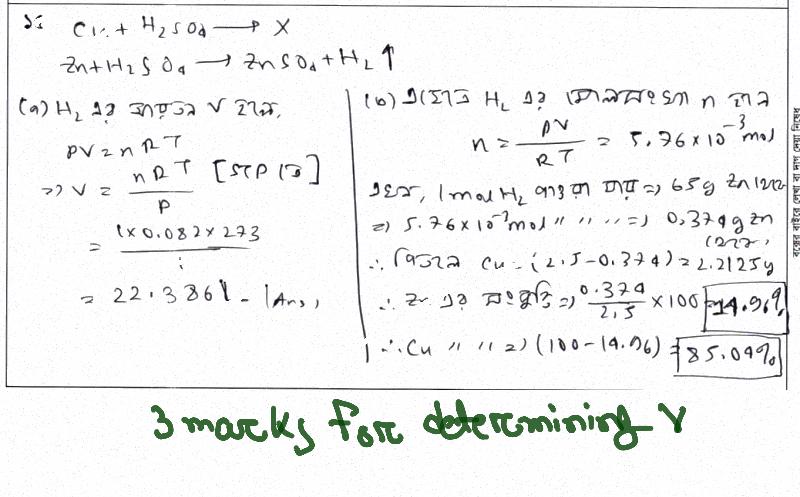 Cu + H₂SO₄ → X
Zn + H₂SO₄ → ZnSO₄ + H₂ ↑
(a) H₂ এর আয়তন V হলে,
PV = nRT
=> V = nRT / P [STP তে]
= 1×0.082×273 / 1
= 22.386 L (Ans)
(b) H₂ এর মোলসংখ্যা n হলে
n = PV / RT = 5.76×10⁻³ mol
1 mol H₂ পাওয়া যায় => 65g Zn
=> 5.76×10⁻³ mol " " " => 0.374g Zn
∴ Cu = (2.5-0.374) = 2.2125g
∴ Zn এর সংযুক্তি => 0.374 / 2.5 × 100 = 14.96%
∴ Cu " " => (100-14.96) = 85.04%
বক্সের বাইরে লেখা বা দাগ দেয়া নিষেধ
3 marks for determining V